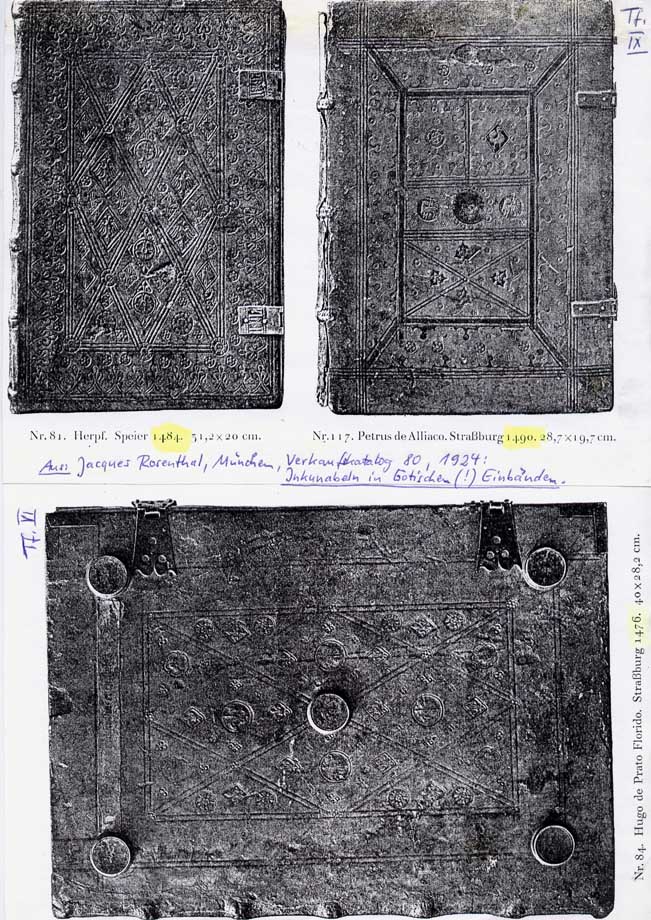 Tf.
IX
Nr. 81. Herpf. Speier 1484. 31,2×20 cm.
Nr. 117. Petrus de Alliaco. Straßburg 1490. 28,7×19,7 cm.
Aus: Jacques Rosenthal, München, Verkaufskatalog 80, 1924:
Inkunabeln in Gotischen (!) Einbänden.
Tf. VI
Nr. 84. Hugo de Prato Florido. Straßburg 1476. 40×28,2 cm.